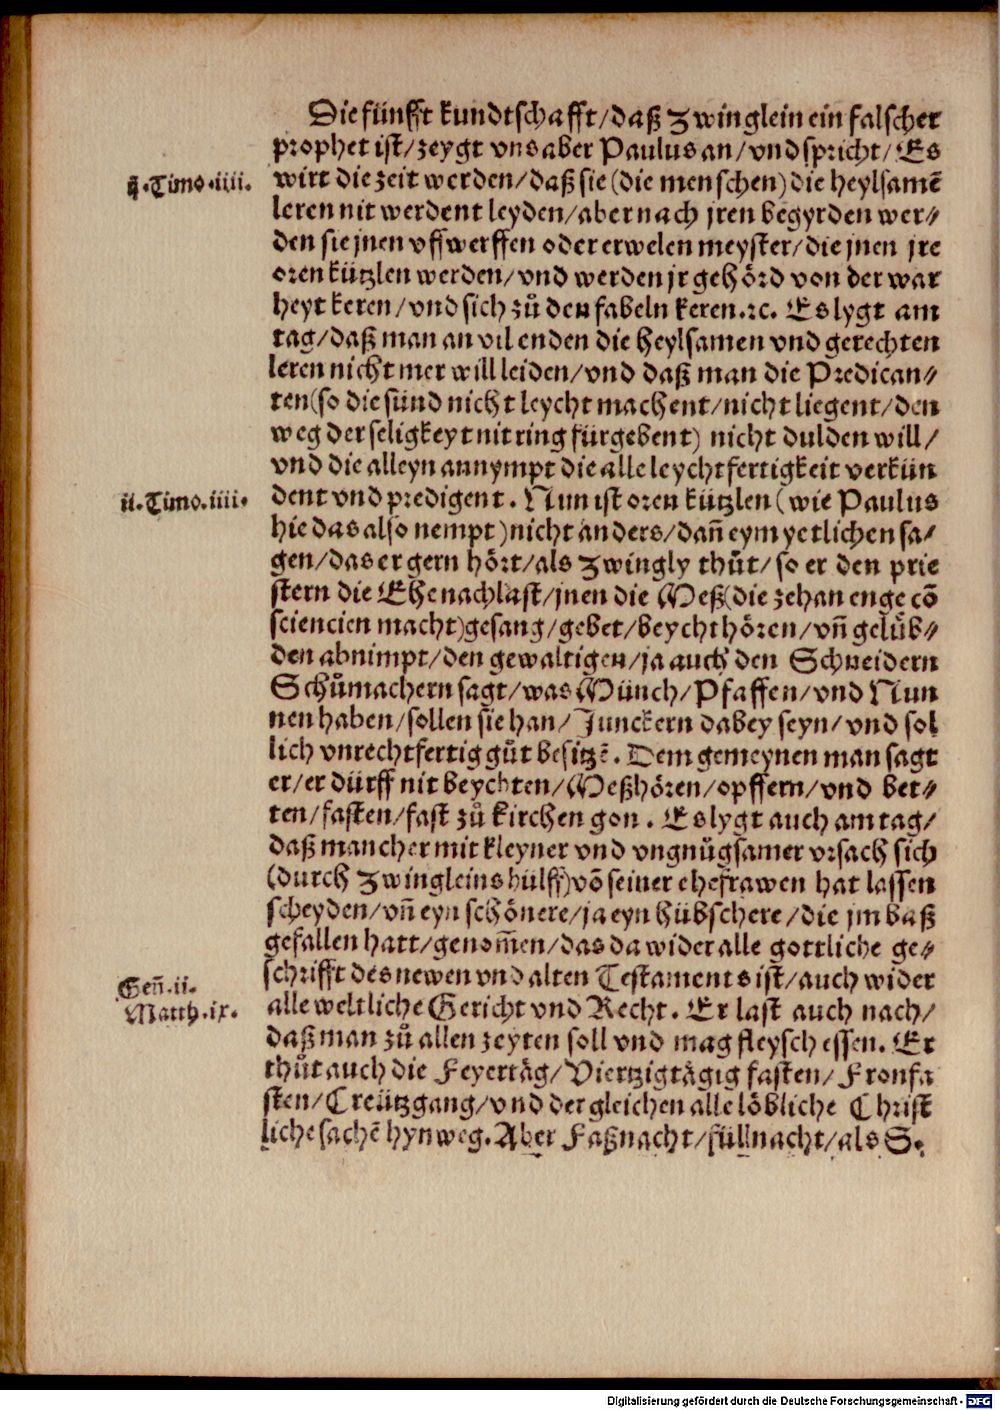 Die fünfft kundtschafft/daß Zwinglein ein falscher
prophet ist/zeygt vns aber Paulus an/vnd spricht/Es
ij.Timo.iiii.
wirt die zeit werden/daß sie (die menschen) die heylsamē
leren nit werdent leyden/aber nach jren begyrden wer⸗
den sie jnen vffwerffen oder erwelen meyster/die jnen jre
oren kützlen werden/vnd werden jr gehörd von der war
heyt keren/vnd sich zů den fabeln keren.ꝛc. Es lygt am
tag/daß man an vil enden die heylsamen vnd gerechten
leren nicht mer will leiden/vnd daß man die Predican⸗
ten(so die sünd nicht leycht machent/nicht liegent/den
weg der seligkeyt nit ring fürgebent) nicht dulden will/
vnd die alleyn annympt die alle leychtfertigkeit verkün
ii.Timo.iiii.
dent vnd predigent. Nun ist oren kützlen (wie Paulus
hie das also nempt)nicht anders/dañ eym yetlichen sa⸗
gen/das er gern hört/als Zwingly thůt/so er den prie
stern die Ehe nachlast/jnen die Meß(die zehan enge cō
sciencien macht)gesang/gebet/beycht hören/vñ gelüb⸗
den abnimpt/den gewaltigen/ja auch den Schneidern
Schůmachern sagt/was Münch/Pfaffen/vnd Nun
nen haben/sollen sie han/Junckern dabey seyn/vnd sol
lich vnrechtfertig gůt besitzē. Dem gemeynen man sagt
er/er dürff nit beychten/Meßhören/opffern/vnd bet⸗
ten/fasten/fast zů kirchen gon. Es lygt auch am tag/
daß mancher mit kleyner vnd vngnůgsamer vrsach sich
(durch Zwingleins hülff)vō seiner ehefrawen hat lassen
scheyden/vñ eyn schönere/ja eyn hübschere/die jm baß
gefallen hatt/genom̄en/das da wider alle gottliche ge⸗
schrifft des newen vnd alten Testaments ist/auch wider
Geñ.ii.
Matth.ix.
alle weltliche Gericht vnd Recht. Er last auch nach/
daß man zů allen zeyten soll vnd mag fleysch essen. Er
thůt auch die Feyertäg/Viertzigtägig fasten/Fronfa
sten/Creützgang/vnd der gleichen alle löbliche Christ
liche sachē hynweg. Aber Faßnacht/füllnacht/als S.
Digitalisierung gefördert durch die Deutsche Forschungsgemeinschaft - DFG